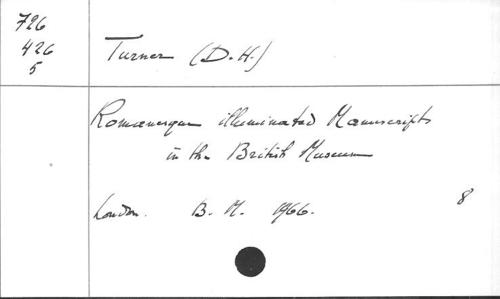 726
426
5
Turner (D.H.)
Romanesque illuminated Manuscripts
in the British Museum
London. B. M. 1966.
8